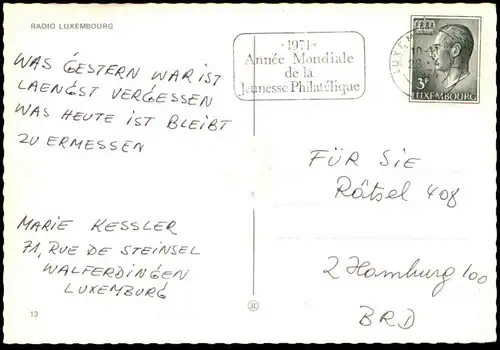 RADIO LUXEMBOURG
WAS GESTERN WAR IST
LAENGST VERGESSEN
WAS HEUTE IST BLEIBT
ZU ERMESSEN
MARIE KESSLER
71, RUE DE STEINSEL
WALFERDINGEN
LUXEMBURG
13
·1971·
Année Mondiale
de la
Jeunesse Philatélique
3F
LUXEMBOURG
FÜR SIE
Rätsel 408
2 Hamburg 100
BRD